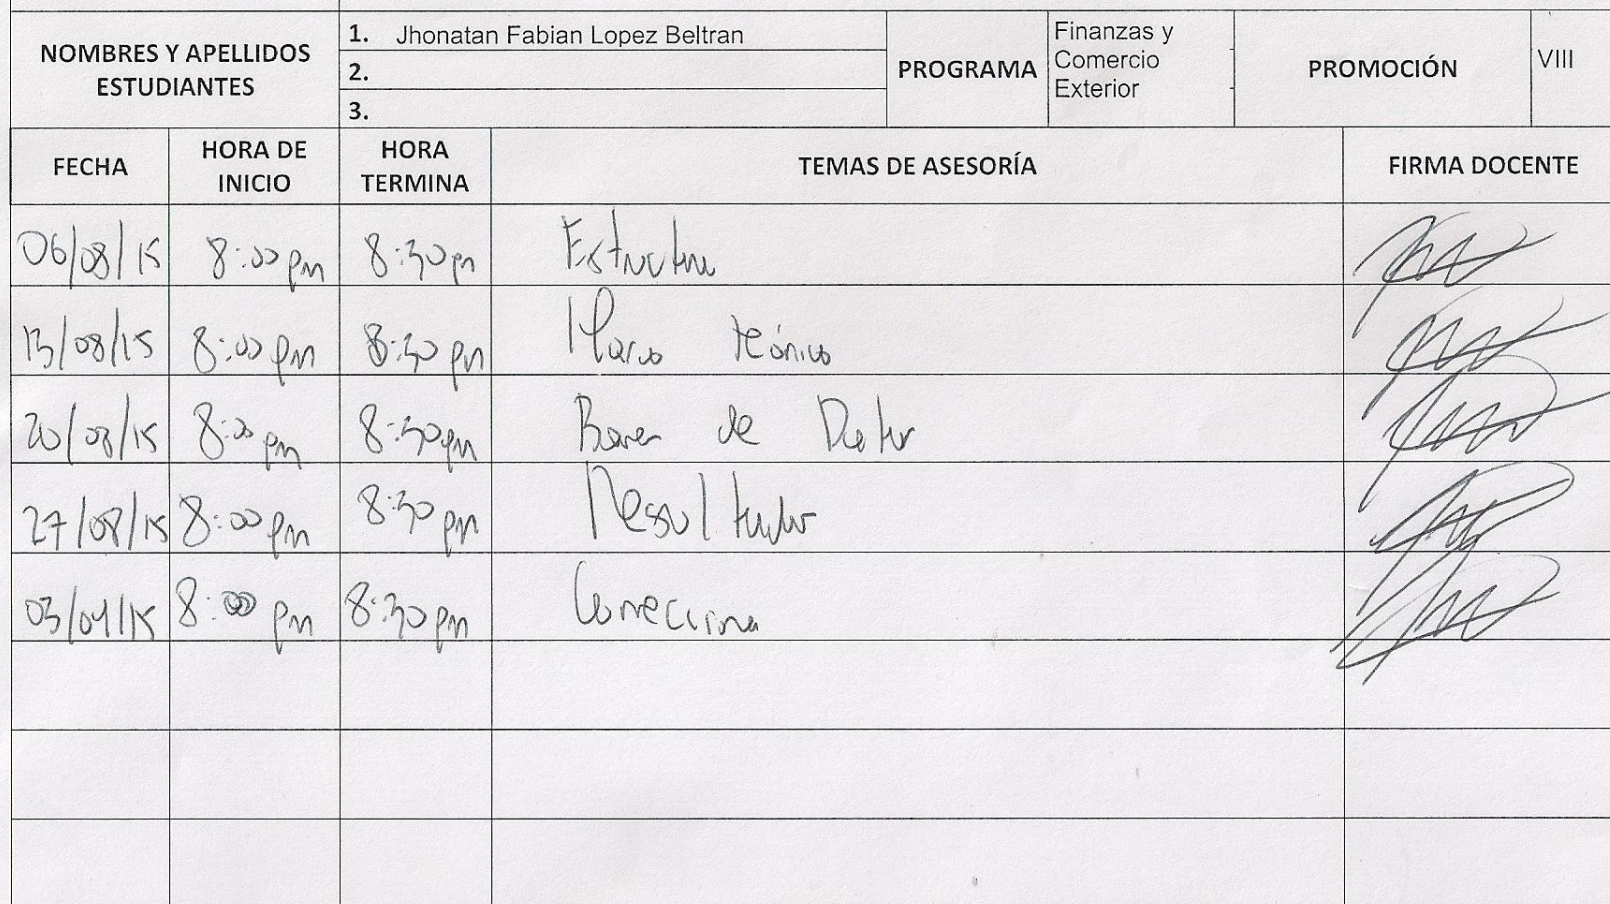 NOMBRES Y APELLIDOS
ESTUDIANTES
1. Jhonatan Fabian Lopez Beltran
2.
3.
PROGRAMA
Finanzas y
Comercio
Exterior
PROMOCIÓN
VIII
FECHA
HORA DE
INICIO
HORA
TERMINA
TEMAS DE ASESORÍA
FIRMA DOCENTE
06/08/15 8:00 pm 8:30 pm Estructura
13/08/15 8:00 pm 8:30 pm Marco teórico
20/08/15 8:00 pm 8:30 pm Bases de Datos
27/08/15 8:00 pm 8:30 pm Resultados
03/09/15 8:00 pm 8:30 pm Correcciones